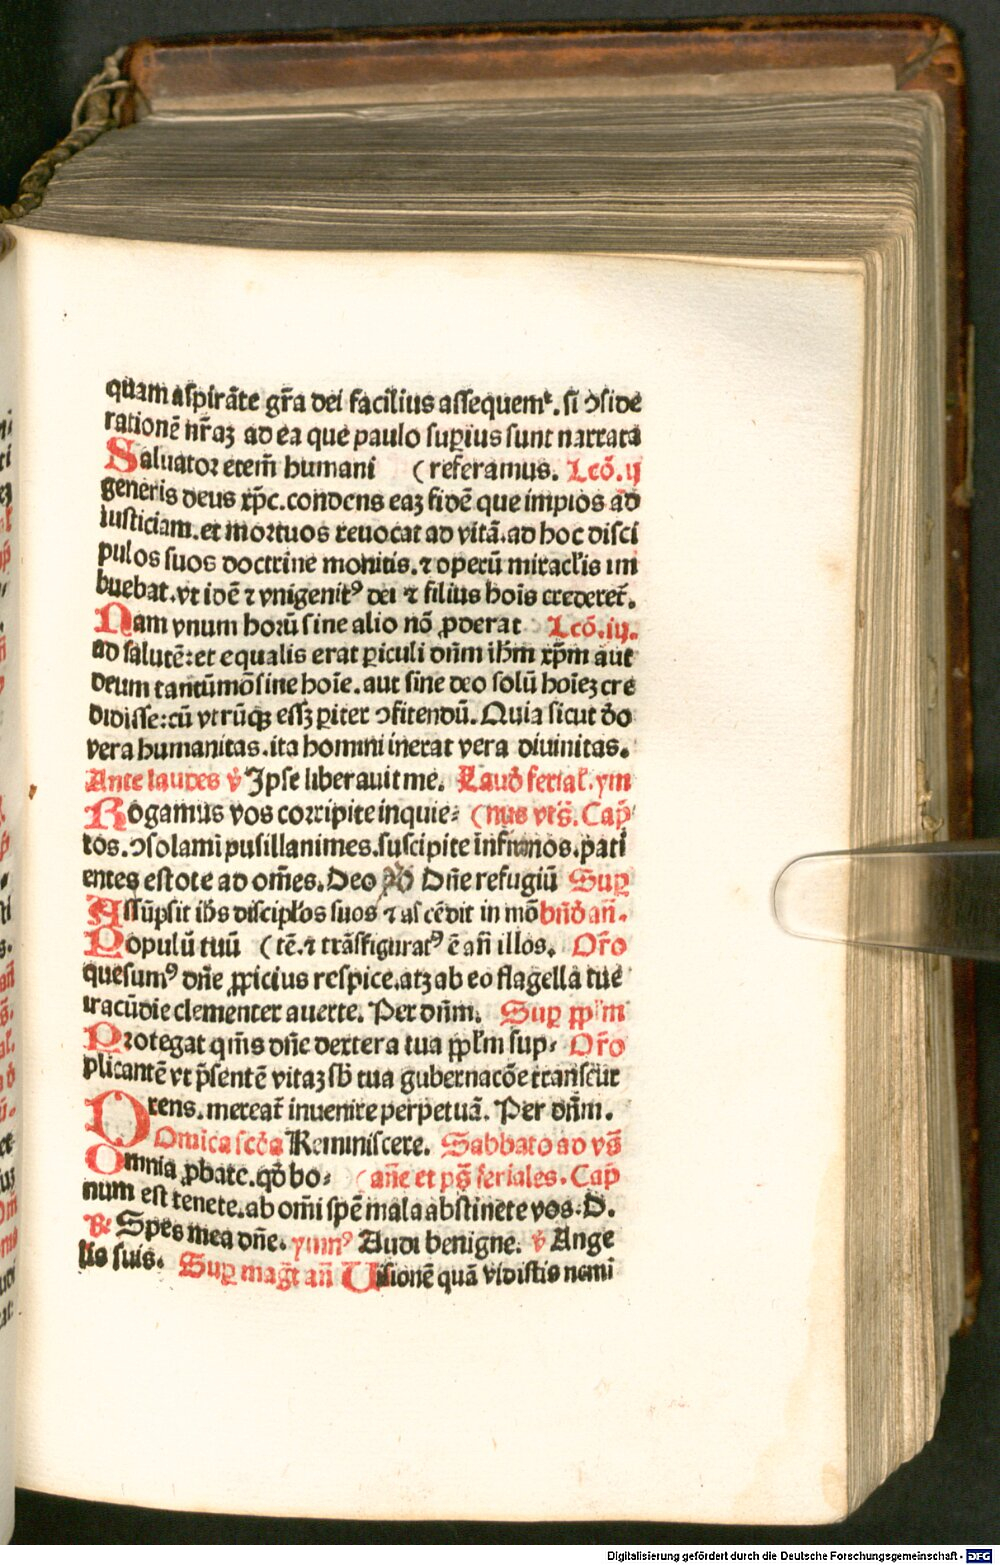 quam aspirãte gr̃a dei facilius assequemᷣ. si ↄside
rationẽ nr̃aꝫ ad ea que paulo suꝑius sunt narrata
Saluator etem̃ humani ( referamus. Lcõ. ij
generis deus xp̃c. condens eaꝫ fidẽ que impios ad
iusticiam. et mortuos reuocat ad vitã. ad hoc disci
pulos suos doctrine monitis. ⁊ operũ miracl̃is im
buebat. vt idẽ ⁊ vnigenitꝰ dei ⁊ filius hois crederet̃.
Nam vnum horũ sine alio nõ ꝓderat Lcõ. iij.
ad salutẽ: et equalis erat ꝑiculi dñm ih̃m xp̃m aut
deum tantũmõ sine hoĩe. aut sine deo solũ hoĩeꝫ cre
didisse: cũ vtrũqꝫ essꝫ ꝑiter ↄfitendũ. Quia sicut d̃o
vera humanitas. ita homini inerat vera diuinitas.
Ante laudes v̾ Ipse liberauit me. Laud̾ ferial̾. ym
Rogamus vos corripite inquie⸗ (nus vts̃. Cap̃
tos. ↄsolami pusillanimes. suscipite infirmos. pati
entes estote ad om̃es. Deo Dñe refugiũ Suꝑ
Assũpsit ih̃s discipl̾os suos ⁊ ascẽdit in mõ bñd̾ añ.
Populũ tuũ (tẽ. ⁊ trãsfiguratꝰ ẽ añ illos. Or̃o
quesumꝰ dñe ꝓpicius respice. atꝫ ab eo flagella tue
iracũdie clementer auerte. Per dñm. Suꝑ ppl̾m
Protegat qm̃s dñe dextera tua ppl̾m sup⸗ Or̃o
plicantẽ vt p̃sentẽ vitaꝫ sb̾ tua gubernacõe transcur
Orens. mereat̃ inuenire perpetuã. Per dñm.
Omica scd̾a Reminiscere. Sabbato ad vs̃
Omnia ꝓbate. qd̾ bo⸗ (añe et ps̃ feriales. Cap̃
num est tenete. ab om̃i spẽ mala abstinete vos. D.
℞ Spes mea dñe. ymnꝰ Audi benigne. v̾ Ange
lis suis. Suꝑ mag̃t añ Uisionẽ quã vidistis nemi
Digitalisierung gefördert durch die Deutsche Forschungsgemeinschaft - DFG